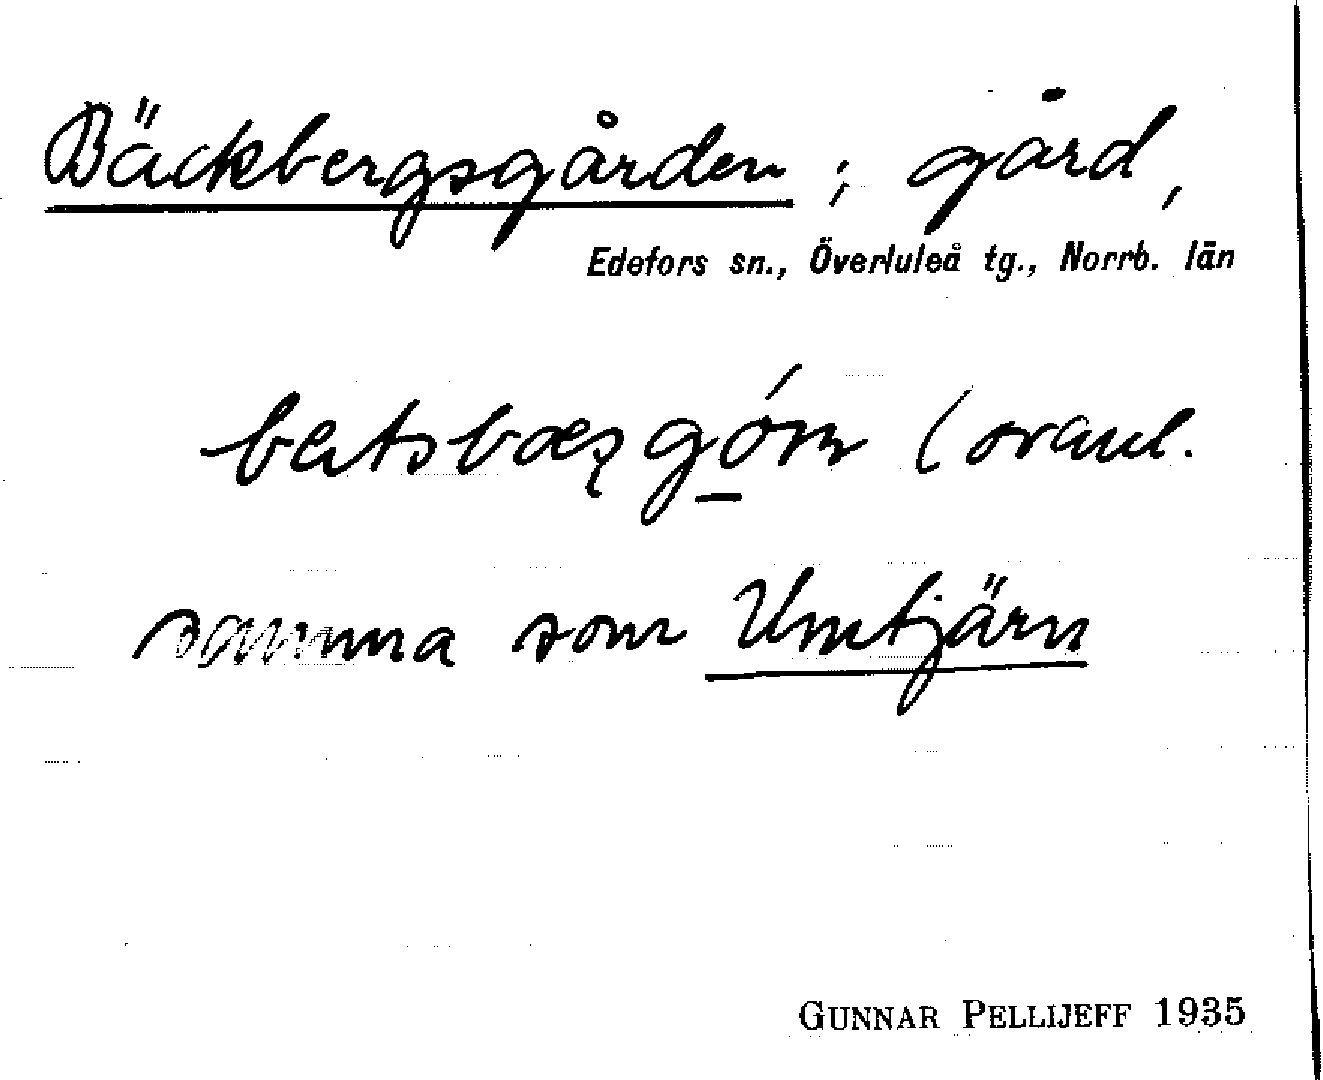 Bäckbergsgården ; gård,
Edefors sn., Överluleå tg., Norrb. län
(ovanl.
samma som Umtjärn
GUNNAR PELLIJEFF 1935